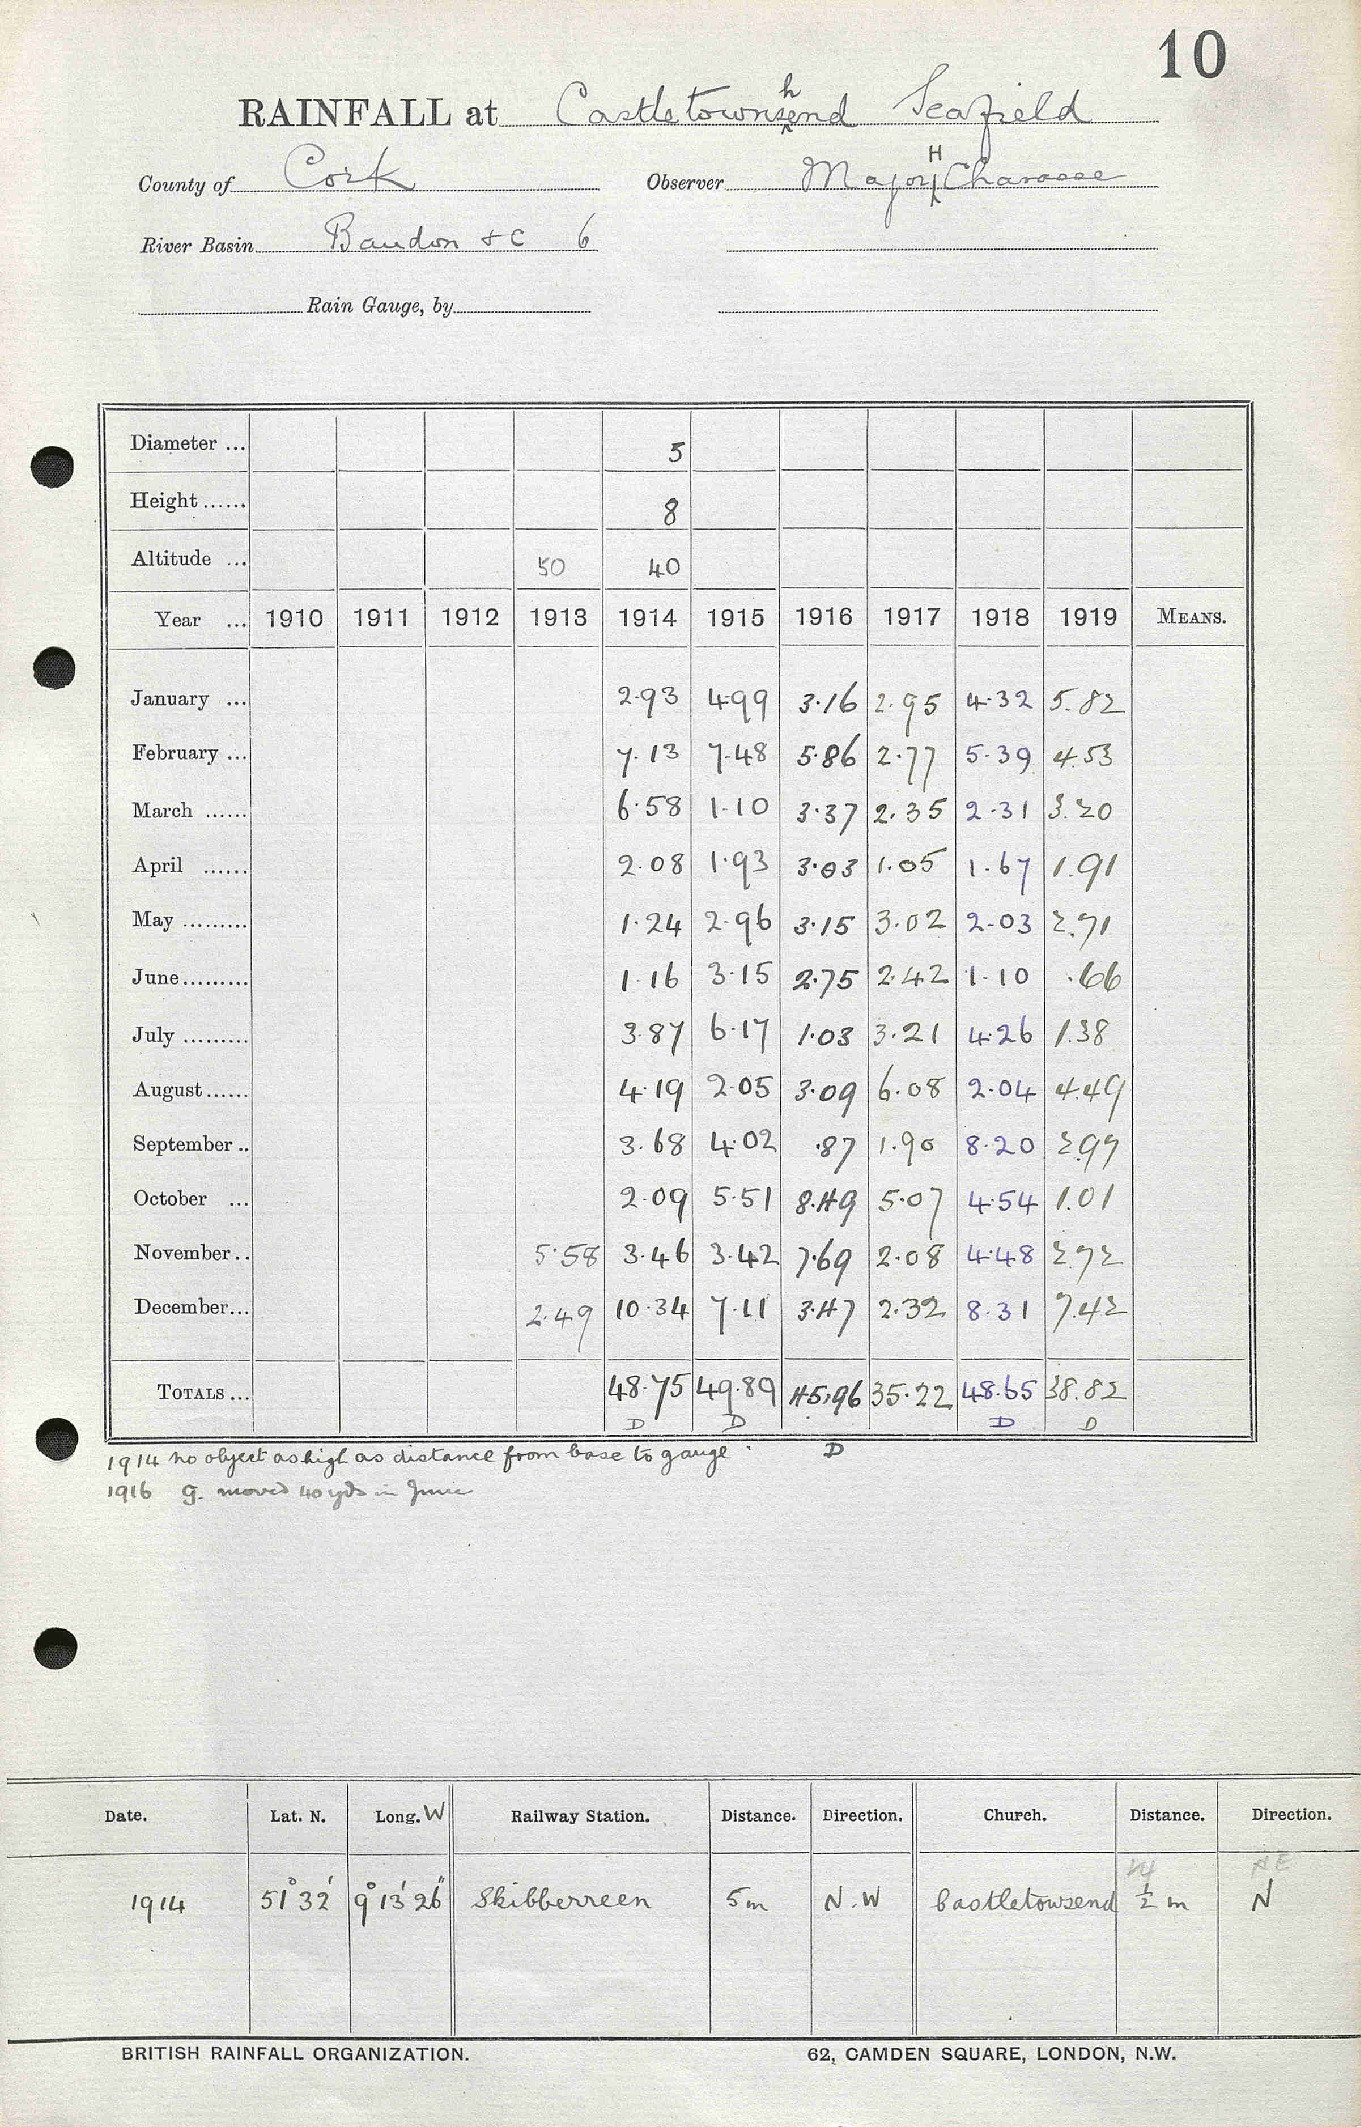 10
RAINFALL at Castletownshend Seafield
County of Cork Observer Major H Chavasse
River Basin Bandon &c 6
Rain Gauge, by
Diameter ... 5
Height ...... 8
Altitude ... 50 40
Year ... 1910 1911 1912 1913 1914 1915 1916 1917 1918 1919 MEANS.
January ... 2.93 4.99 3.16 2.95 4.32 5.82
February ... 7.13 7.48 5.86 2.77 5.39 4.53
March ...... 6.58 1.10 3.37 2.35 2.31 3.20
April ...... 2.08 1.93 3.03 1.05 1.67 1.91
May ......... 1.24 2.96 3.15 3.02 2.03 2.71
June ......... 1.16 3.15 2.75 2.42 1.10 .66
July ......... 3.87 6.17 1.03 3.21 4.26 1.38
August ...... 4.19 2.05 3.09 6.08 2.04 4.49
September .. 3.68 4.02 .87 1.90 8.20 2.97
October ... 2.09 5.51 8.49 5.07 4.54 1.01
November .. 5.58 3.46 3.42 7.69 2.08 4.48 2.72
December ... 2.49 10.34 7.11 3.47 2.32 8.31 7.42
TOTALS ... 48.75 49.89 45.96 35.22 48.65 38.82
D D D D
1914 no object as high as distance from base to gauge. D
1916 g. moved 40 yds in June
Date. Lat. N. Long. W Railway Station. Distance. Direction. Church. Distance. Direction.
1/4 NE
1914 51° 32' 9° 13' 26" Skibbereen 5m N.W Castletowsend 1/2 m N
BRITISH RAINFALL ORGANIZATION. 62, CAMDEN SQUARE, LONDON, N.W.